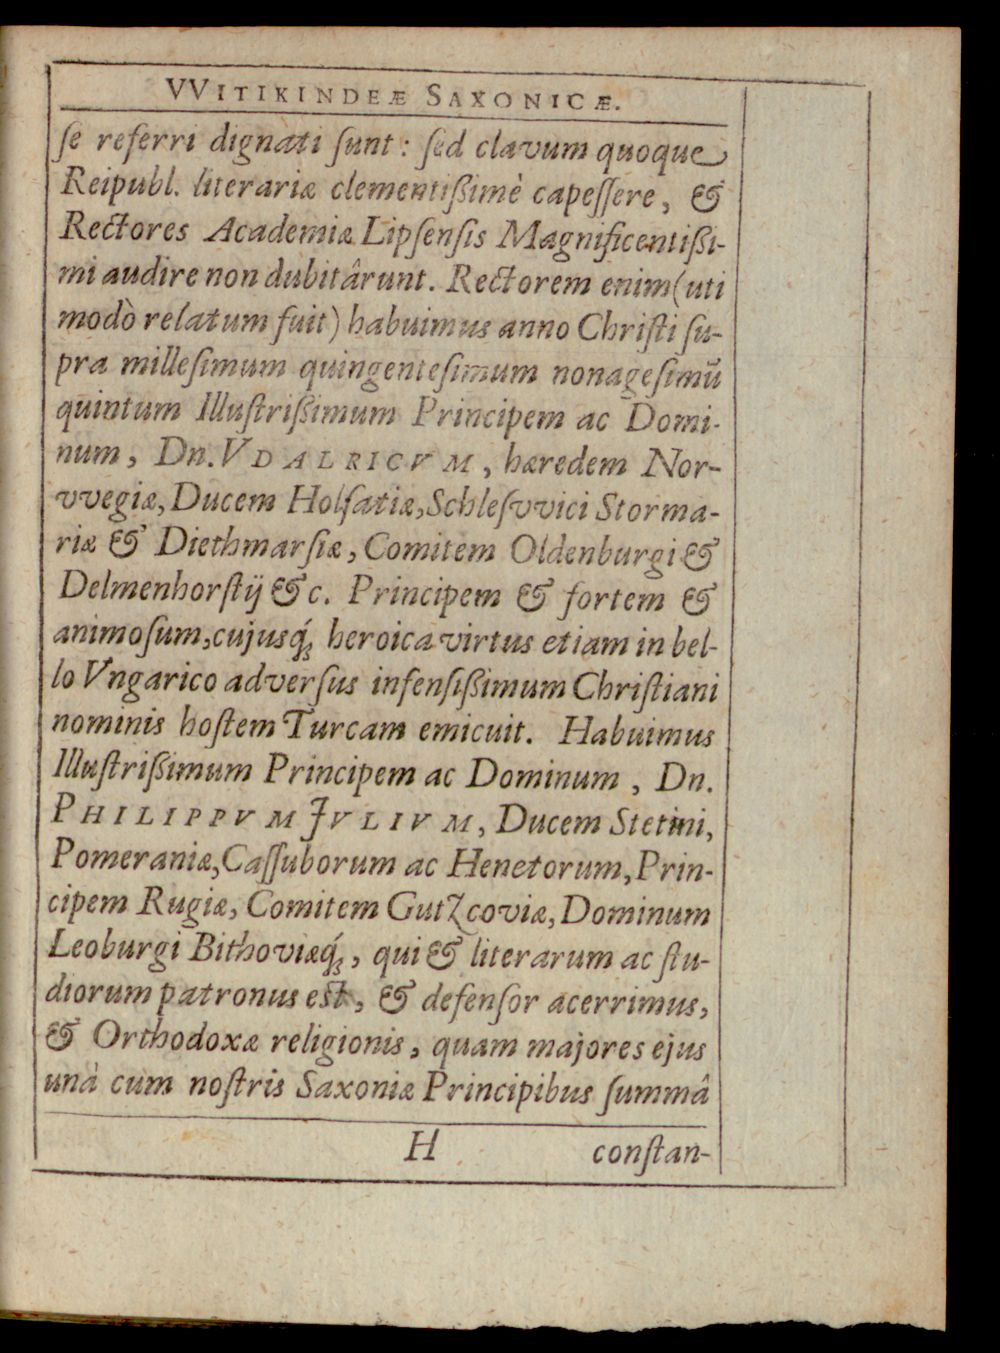 VVITIKINDEÆ SAXONICÆ.
ſe referri dignati ſunt: ſed clavum quoque
Reipubl. literariæ clementißimè capeſſere, &
Rectores Academiæ Lipſenſis Magnificentißi-
mi audire non dubitârunt. Rectorem enim (uti
modò relatum fuit) habuimus anno Chriſti ſu-
pra milleſimum quingenteſimum nonageſimū
quintum Illuſtrißimum Principem ac Domi-
num, Dn. VDALRICVM, hæredem Nor-
vvegiæ, Ducem Holſatiæ, Schleſvvici Storma-
riæ & Diethmarſiæ, Comitem Oldenburgi &
Delmenhorſtij &c. Principem & fortem &
animoſum, cujusq́ꝫ heroica virtus etiam in bel-
lo Vngarico adverſus infenſißimum Chriſtiani
nominis hoſtem Turcam emicuit. Habuimus
Illuſtrißimum Principem ac Dominum, Dn.
PHILIPPVM JVLIVM, Ducem Stetini,
Pomeraniæ, Caſſuborum ac Henetorum, Prin-
cipem Rugiæ, Comitem Gutzcoviæ, Dominum
Leoburgi Bithoviæq́ꝫ, qui & literarum ac ſtu-
diorum patronus eſt, & defenſor acerrimus,
& Orthodoxæ religionis, quam majores ejus
unà cum noſtris Saxoniæ Principibus ſummâ
H conſtan-